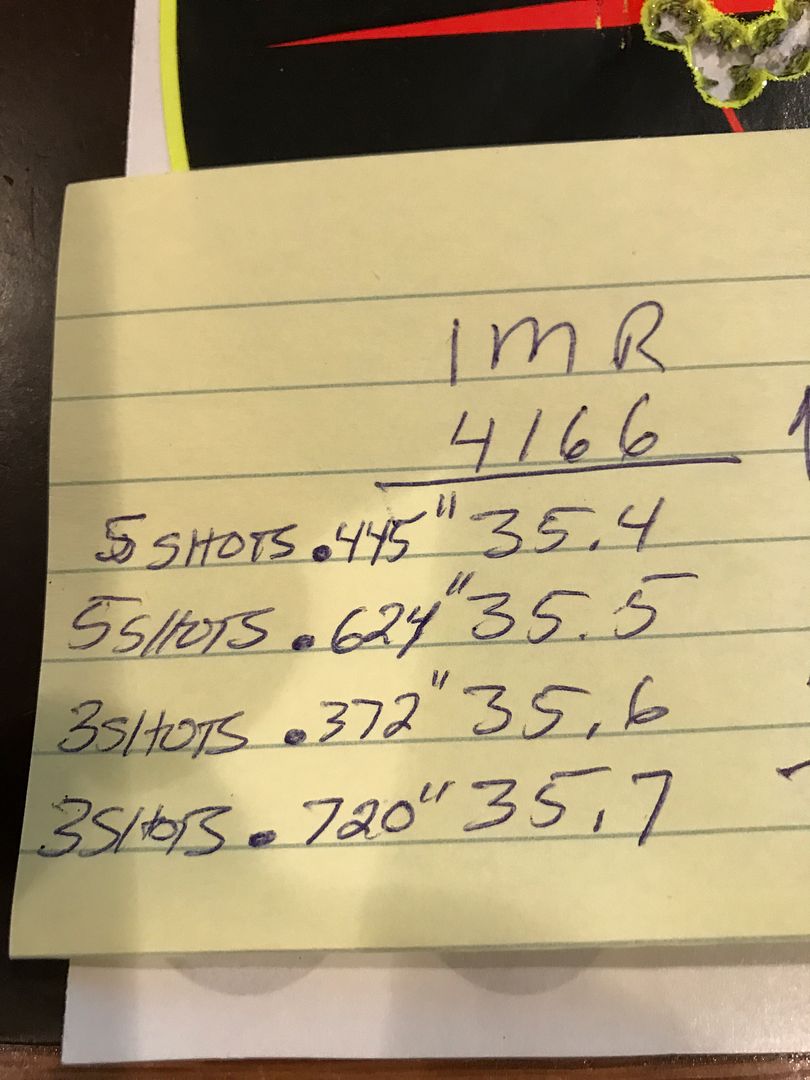 IMR
4166
5 SHOTS .445" 35.4
5 SHOTS .624" 35.5
3 SHOTS .372" 35.6
3 SHOTS .720" 35.7